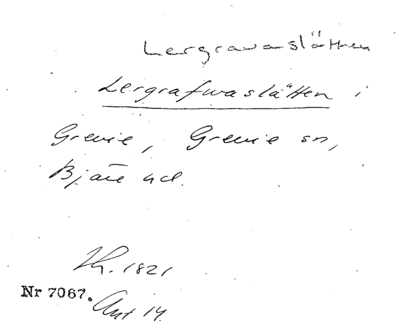 Lergravaslätten
Lergrafwaslätten i
Grevie, Grevie sn,
Bjäre hd.
1821
Nr 7067.
14.